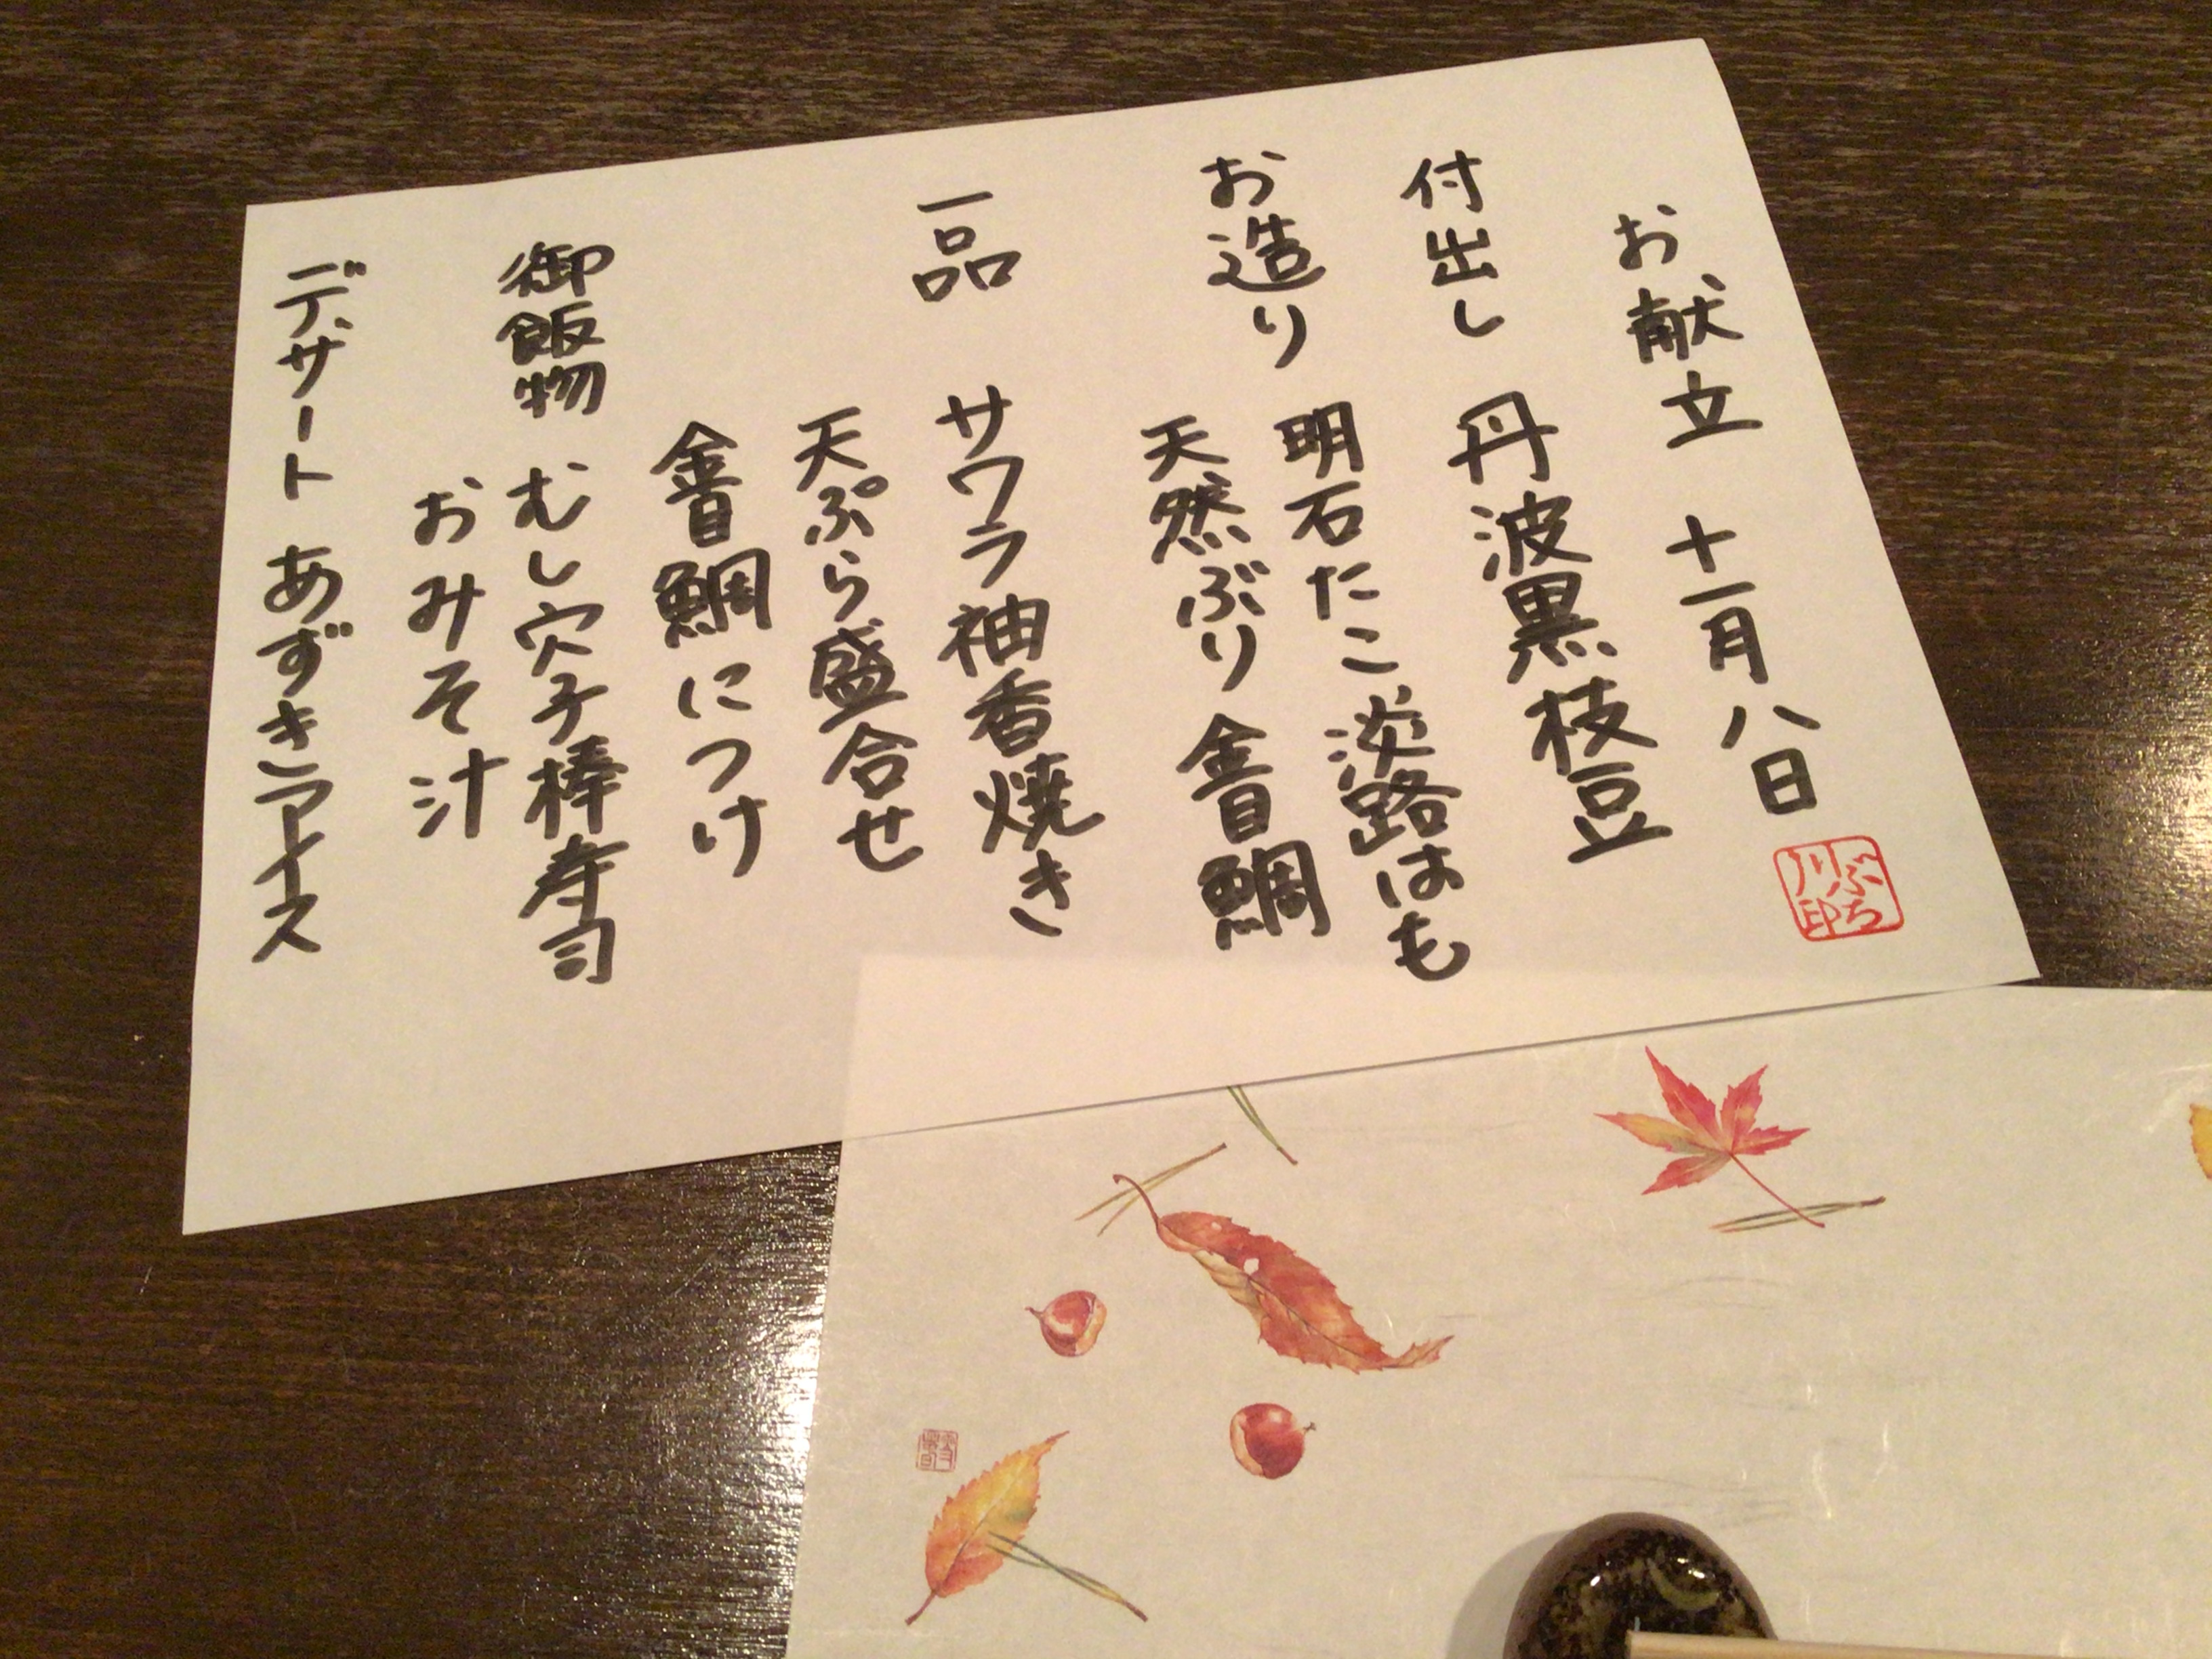 お献立 十一月八日
ぶち
川印
付出し 丹波黒枝豆
お造り 明石たこ 淡路はも
天然ぶり 金目鯛
一品 サワラ袖香焼き
天ぷら盛合せ
金目鯛につけ
御飯物 むし穴子棒寿司
おみそ汁
デザート あずきアイス